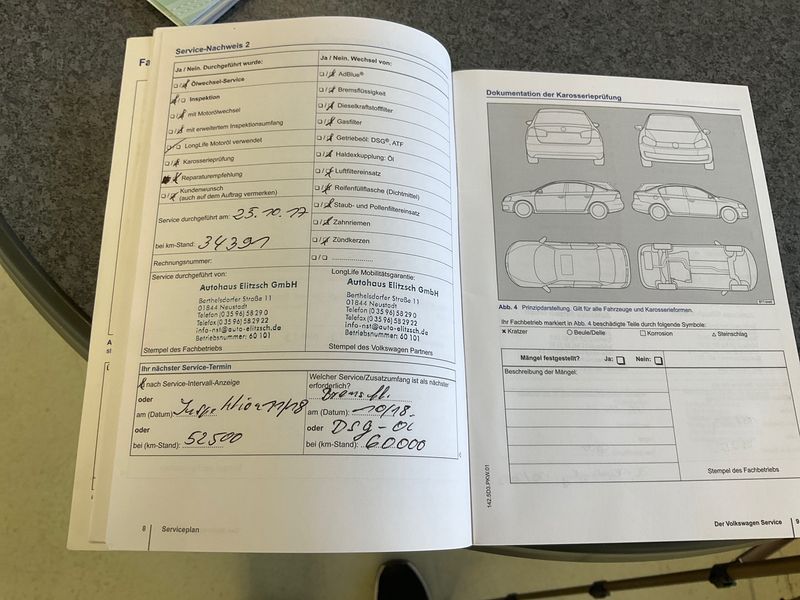 Fa
Service-Nachweis 2
Ja / Nein. Durchgeführt wurde:
Ölwechsel-Service
Inspektion
mit Motorölwechsel
mit erweitertem Inspektionsumfang
LongLife Motoröl verwendet
Karosserieprüfung
Reparaturempfehlung
Kundenwunsch
(auch auf dem Auftrag vermerken)
Service durchgeführt am: 25.10.17
bei km-Stand: 34391
Rechnungsnummer:
Service durchgeführt von:
Autohaus Elitzsch GmbH
Berthelsdorfer Straße 11
01844 Neustadt
Telefon (0 35 96) 58 29 0
Telefax (0 35 96) 58 29 22
info-nst@auto-elitzsch.de
Betriebsnummer: 60 101
Stempel des Fachbetriebs
Ja / Nein. Wechsel von:
AdBlue®
Bremsflüssigkeit
Dieselkraftstofffilter
Gasfilter
Getriebeöl: DSG®, ATF
Haldexkupplung: Öl
Luftfiltereinsatz
Reifenfüllflasche (Dichtmittel)
Staub- und Pollenfiltereinsatz
Zahnriemen
Zündkerzen
LongLife Mobilitätsgarantie:
Autohaus Elitzsch GmbH
Berthelsdorfer Straße 11
01844 Neustadt
Telefon (0 35 96) 58 29 0
Telefax (0 35 96) 58 29 22
info-nst@auto-elitzsch.de
Betriebsnummer: 60 101
Stempel des Volkswagen Partners
Ihr nächster Service-Termin
nach Service-Intervall-Anzeige
oder
am (Datum): Inspektion 11/18
oder
bei (km-Stand): 52500
Welcher Service/Zusatzumfang ist als nächster
erforderlich?
Bremsfl.
am (Datum): 10/18
oder DSG-Öl
bei (km-Stand): 60.000
8 Serviceplan
Dokumentation der Karosserieprüfung
Abb. 4 Prinzipdarstellung. Gilt für alle Fahrzeuge und Karosserieformen.
Ihr Fachbetrieb markiert in Abb. 4 beschädigte Teile durch folgende Symbole:
x Kratzer ○ Beule/Delle □ Korrosion △ Steinschlag
Mängel festgestellt? Ja: Nein:
Beschreibung der Mängel:
Stempel des Fachbetriebs
142.5D3.PKW.01
Der Volkswagen Service 9